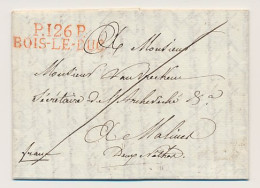 P.126.P.
BOIS-LE-DUC
A Monsieur
Monsieur Van
Secrétaire de l'Archevêché &a
A Malines
Deux Nethes
franco